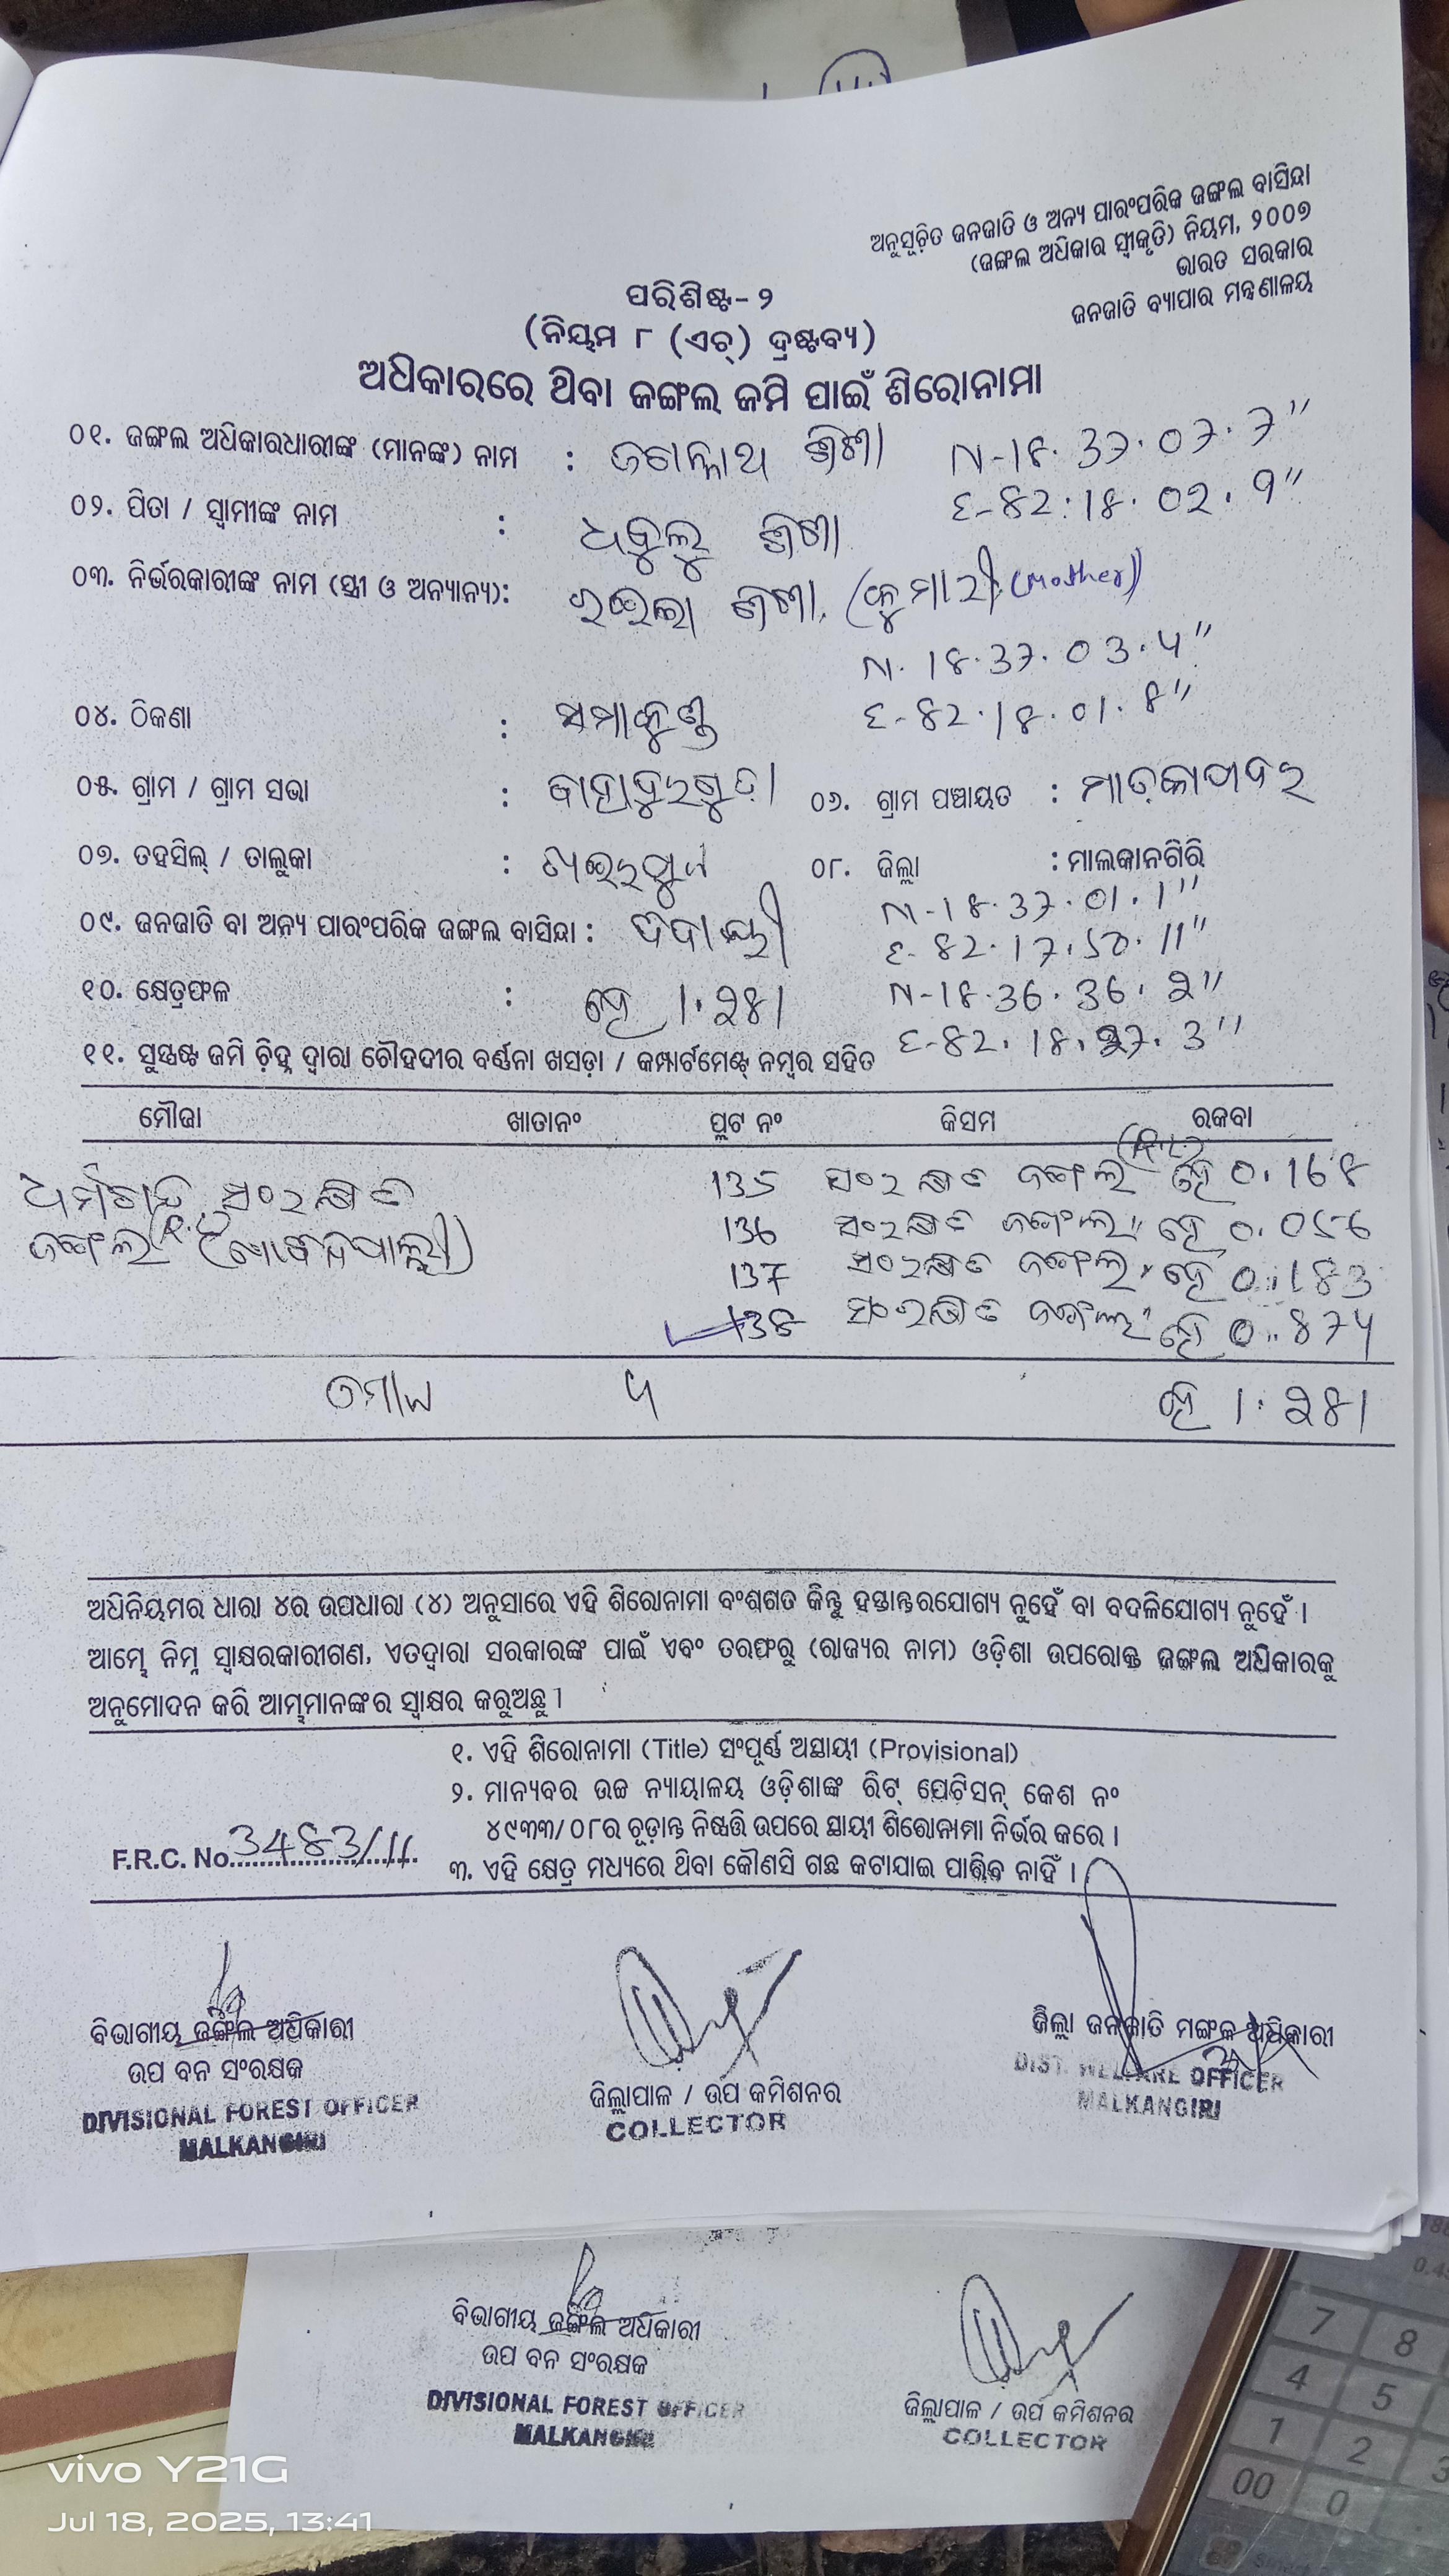 ଅନୁସୂଚିତ ଜନଜାତି ଓ ଅନ୍ୟ ପାରଂପରିକ ଜଙ୍ଗଲ ବାସିନ୍ଦା
(ଜଙ୍ଗଲ ଅଧିକାର ସ୍ୱୀକୃତି) ନିୟମ, ୨୦୦୭
ଭାରତ ସରକାର
ଜନଜାତି ବ୍ୟାପାର ମନ୍ତ୍ରଣାଳୟ
ପରିଶିଷ୍ଟ- ୨
(ନିୟମ ୮ (ଏଚ୍) ଦ୍ରଷ୍ଟବ୍ୟ)
ଅଧିକାରରେ ଥିବା ଜଙ୍ଗଲ ଜମି ପାଇଁ ଶିରୋନାମା
୦୧. ଜଙ୍ଗଲ ଅଧିକାରଧାରୀଙ୍କ (ମାନଙ୍କ) ନାମ : ଜଗନ୍ନାଥ
N-18.37.07.7"
E-82:18.02.9"
୦୨. ପିତା / ସ୍ୱାମୀଙ୍କ ନାମ :
୦୩. ନିର୍ଭରକାରୀଙ୍କ ନାମ (ସ୍ତ୍ରୀ ଓ ଅନ୍ୟାନ୍ୟ): (Mother)
N.18.37.03.4"
E-82.18.01.8"
୦୪. ଠିକଣା :
୦୫. ଗ୍ରାମ / ଗ୍ରାମ ସଭା : ବାହାଦୁରଗୁଡ଼ା ୦୬. ଗ୍ରାମ ପଞ୍ଚାୟତ :
୦୭. ତହସିଲ୍ / ତାଲୁକା : ୦୮. ଜିଲ୍ଲା : ମାଲକାନଗିରି
N-18.37.01.1"
୦୯. ଜନଜାତି ବା ଅନ୍ୟ ପାରଂପରିକ ଜଙ୍ଗଲ ବାସିନ୍ଦା :
E-82.17.58.11"
୧୦. କ୍ଷେତ୍ରଫଳ : ହେ 1.281
N-18.36.36.2"
୧୧. ସୁସ୍ପଷ୍ଟ ଜମି ଚିହ୍ନ ଦ୍ୱାରା ଚୌହଦୀର ବର୍ଣ୍ଣନା ଖସଡ଼ା / କମ୍ପାର୍ଟମେଣ୍ଟ୍ ନମ୍ବର ସହିତ
ମୌଜା ଖାତାନଂ ପ୍ଲଟ ନଂ କିସମ ରକବା
ସଂରକ୍ଷିତ 135 ସଂରକ୍ଷିତ ଜଙ୍ଗଲ ହେ 0.168
ଜଙ୍ଗଲ 136 ସଂରକ୍ଷିତ ଜଙ୍ଗଲ ହେ 0.056
137 ସଂରକ୍ଷିତ ଜଙ୍ଗଲ ହେ 0.183
138 ସଂରକ୍ଷିତ ଜଙ୍ଗଲ ହେ 0.874
4 ହେ 1.281
ଅଧିନିୟମର ଧାରା ୪ର ଉପଧାରା (୪) ଅନୁସାରେ ଏହି ଶିରୋନାମା ବଂଶଗତ କିନ୍ତୁ ହସ୍ତାନ୍ତରଯୋଗ୍ୟ ନୁହେଁ ବା ବଦଳିଯୋଗ୍ୟ ନୁହେଁ ।
ଆମ୍ଭେ ନିମ୍ନ ସ୍ୱାକ୍ଷରକାରୀଗଣ, ଏତଦ୍ୱାରା ସରକାରଙ୍କ ପାଇଁ ଏବଂ ତରଫରୁ (ରାଜ୍ୟର ନାମ) ଓଡ଼ିଶା ଉପରୋକ୍ତ ଜଙ୍ଗଲ ଅଧିକାରକୁ
ଅନୁମୋଦନ କରି ଆମ୍ଭମାନଙ୍କର ସ୍ୱାକ୍ଷର କରୁଅଛୁ ।
୧. ଏହି ଶିରୋନାମା (Title) ସଂପୂର୍ଣ୍ଣ ଅସ୍ଥାୟୀ (Provisional)
୨. ମାନ୍ୟବର ଉଚ୍ଚ ନ୍ୟାୟାଳୟ ଓଡ଼ିଶାଙ୍କ ରିଟ୍ ପେଟିସନ୍ କେଶ ନଂ
୪୯୩୩/୦୮ର ଚୂଡ଼ାନ୍ତ ନିଷ୍ପତ୍ତି ଉପରେ ସ୍ଥାୟୀ ଶିରୋନାମା ନିର୍ଭର କରେ ।
F.R.C. No. 3483/11
୩. ଏହି କ୍ଷେତ୍ର ମଧ୍ୟରେ ଥିବା କୌଣସି ଗଛ କଟାଯାଇ ପାରିବ ନାହିଁ ।
ବିଭାଗୀୟ ଜଙ୍ଗଲ ଅଧିକାରୀ
ଉପ ବନ ସଂରକ୍ଷକ
DIVISIONAL FOREST OFFICER
MALKANGIRI
ଜିଲ୍ଲାପାଳ / ଉପ କମିଶନର
COLLECTOR
ଜିଲ୍ଲା ଜନଜାତି ମଙ୍ଗଳ ଅଧିକାରୀ
DIST. WELFARE OFFICER
MALKANGIRI
ବିଭାଗୀୟ ଜଙ୍ଗଲ ଅଧିକାରୀ
ଉପ ବନ ସଂରକ୍ଷକ
DIVISIONAL FOREST OFFICER
MALKANGIRI
ଜିଲ୍ଲାପାଳ / ଉପ କମିଶନର
COLLECTOR
7 8
4 5
1 2 3
00 0
vivo Y21G
Jul 18, 2025, 13:41